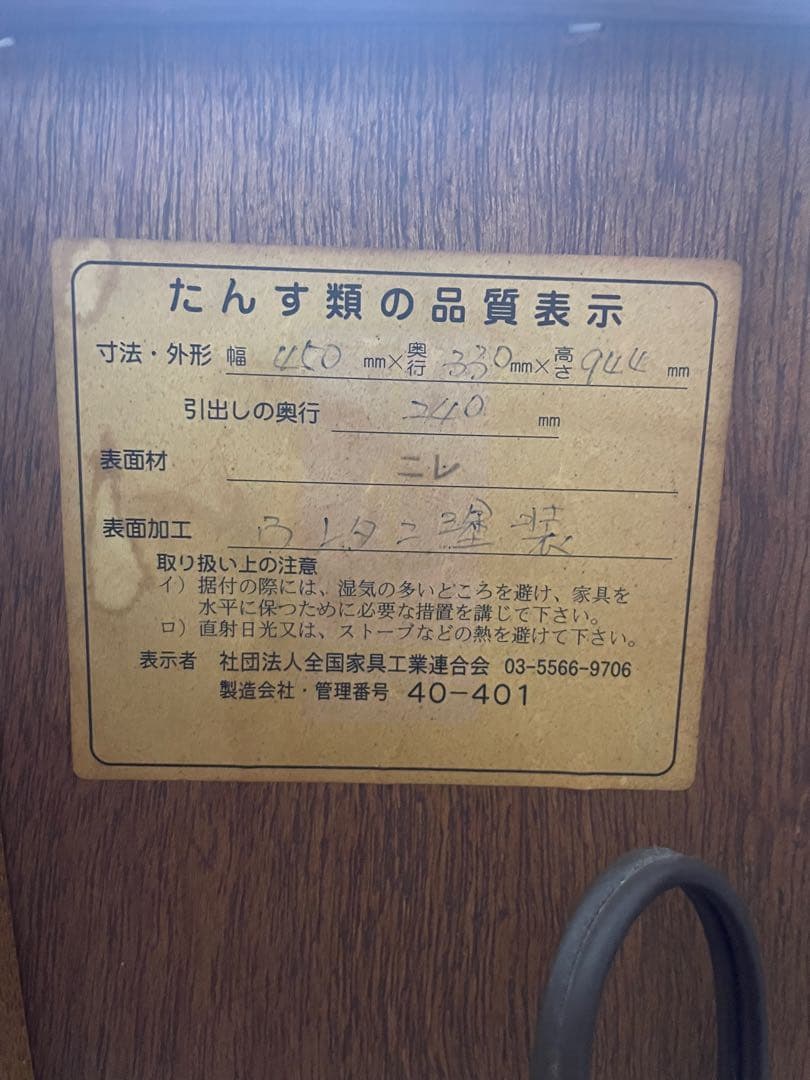 たんす類の品質表示
寸法・外形 幅 450 mm×奥行 330mm×高さ 944 mm
引出しの奥行 240 mm
表面材 ニレ
表面加工 ウレタン塗装
取り扱い上の注意
イ）据付の際には、湿気の多いところを避け、家具を
水平に保つために必要な措置を講じて下さい。
ロ）直射日光又は、ストーブなどの熱を避けて下さい。
表示者 社団法人全国家具工業連合会 03-5566-9706
製造会社・管理番号 40-401